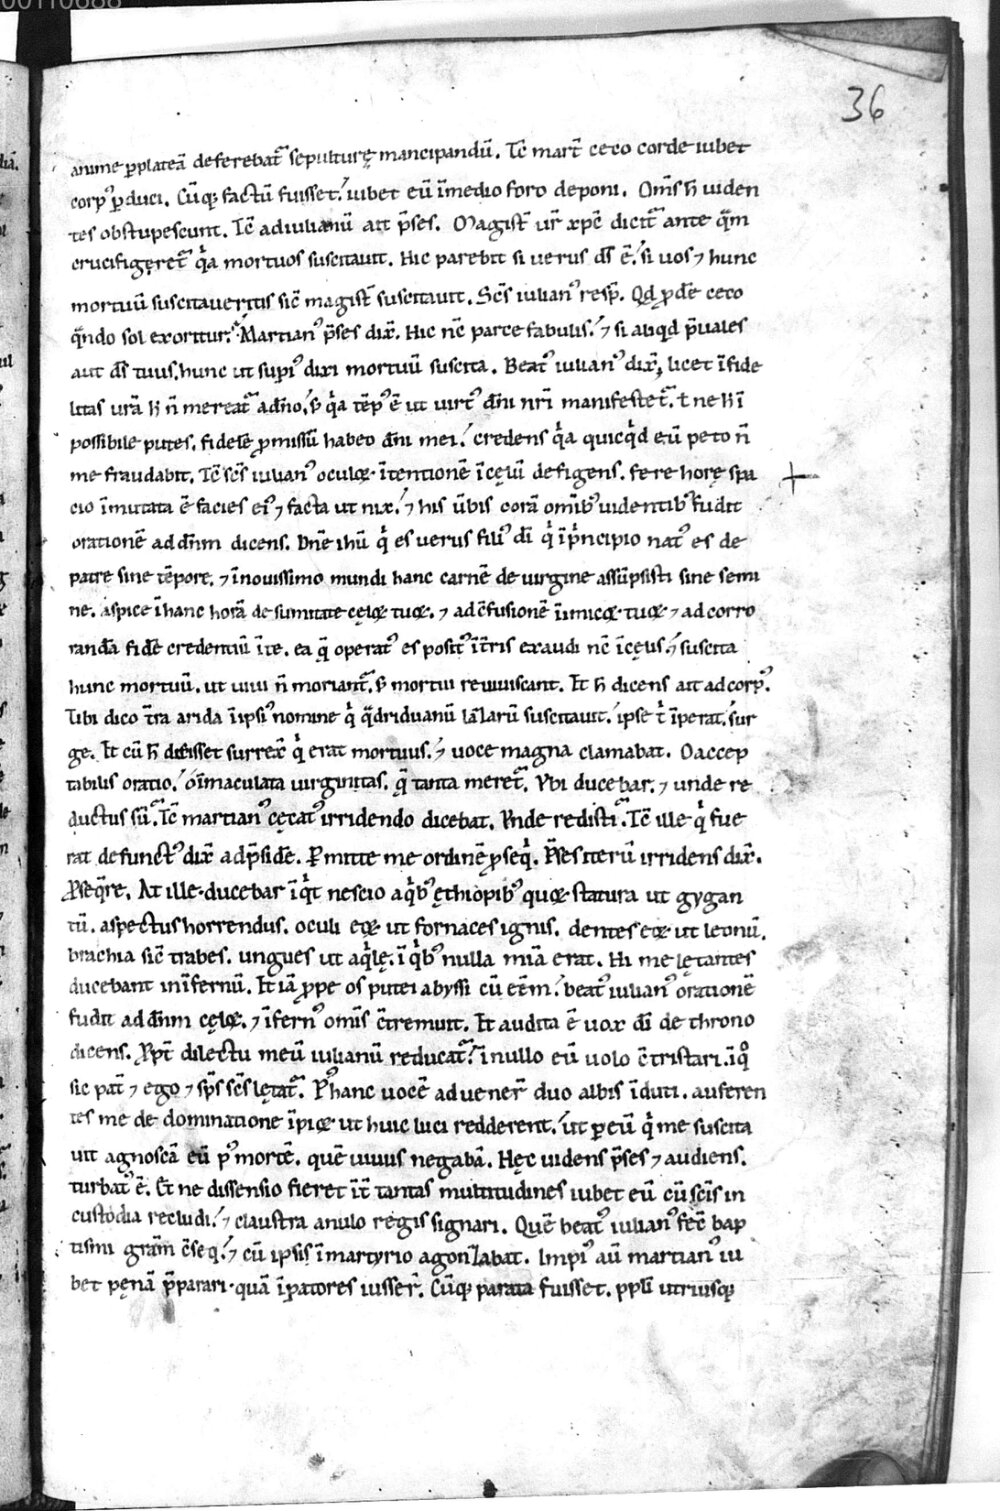 00110688
36
anime p plateā deferebat᷑ sepulturę mancipandū. Tc̄ mart̄ ceco corde iubet
corp᷒ p̱duci. Cūq; factū fuisset. iubet eū īmedio foro deponi. Om̄s h̄ uiden
tes obstupescunt. Tc̄ ad iulianū ait p̄ses. Magist̄ ur̄ xp̄c dicit᷑ ante q̄m
crucifigeret᷑ qͥa mortuos suscitauit. Hic parebit si uerus d̄s ē. si uos ⁊ hunc
mortuū suscitaueritis sic̄ magist̄ suscitauit. Sc̄s iulian᷒ resp̄. Qd̄ ꝓdē ceco
q̄ndo sol exoritur. Martian᷒ p̄ses dix̄. Hic nc̄ parce fabulis. ⁊ si aliqd p̄uales
aut d̄s tuus. hunc ut supi᷒ dixi mortuū suscita. Beat᷒ iulian᷒ dix̄, licet īfide
litas ur̄a h̄ n̄ mereat᷑ a dn̄o. s̄ qͥa tēp᷒ ē ut uirt᷒ dn̄i nr̄i manifestet᷑. t ne h̄ ī
possibile putes. fidelē ꝓmissū habeo dn̄i mei. credens qͥa quicqͥd eū peto n̄
me fraudabit. Tc̄ sc̄s iulian᷒ oculoꝝ intentionē ī cęlū defigens. fere horę spa
cio īmutata ē facies ei᷒ ⁊ facta ut nix. ⁊ his ūbis corā omīb᷒ uidentib᷒ fudit
orationē ad dn̄m dicens. Dn̄e ih̄u qͥ es uerus fili᷒ dī qͥ ī pͥncipio nat᷒ es de
patre sine tēpore. ⁊ ī nouissimo mundi hanc carnē de uirgine assūpsisti sine semi
ne. aspice ī hanc horā de sumitate cęloꝝ tuoꝝ. ⁊ ad c̄fusionē inimicoꝝ tuoꝝ ⁊ ad corro
randā fidē credentiū ī te. ea q̄ operat᷒ es posit᷒ ī t̄ris exaudi nc̄ ī cęlis. ⁊ suscita
hunc mortuū. ut uiui n̄ moriant᷑. s̄ mortui reuiuiscant. Et h̄ dicens ait ad corp᷒.
Tibi dico t̄ra arida ī ipsi᷒ nomine qͥ q̄driduanū laꝫarū suscitauit. ipse t̄ īperat. sur
ge. Et cū h̄ dixisset surrex̄ qͥ erat mortuus. ⁊ uoce magna clamabat. O accep
tabilis oratio. o īmaculata uirginitas. q̄ tanta meret᷑. Vbi ducebar. ⁊ unde re
ductus sū. Tc̄ martian᷒ cęcat᷒ irridendo dicebat. Vnde redisti. Tc̄ ille qͥ fue
rat defunct᷒ dix̄ ad p̄sidē. P̱mitte me ordinē ꝓseqͥ. P̄ses iterū irridens dix̄.
Ꝓseq̄re. At ille. ducebar īqͥt nescio a qͥb᷒ ęthiopib᷒ quoꝝ statura ut gygan
tū. aspectus horrendus. oculi eoꝝ ut fornaces ignis. dentes eoꝝ ut leonū.
brachia sic̄ trabes. ungues ut aqͥlę. ī qͥb᷒ nulla mīa erat. Hi me lętantes
ducebant in īfernū. Et iā ꝓpe os putei abyssi cū eēm. beat᷒ iulian᷒ orationē
fudit ad dn̄m cęloꝝ. ⁊ īfern᷒ omīs c̄tremuit. Et audita ē uox dī de throno
dicens. Ꝓpt̄ dilectū meū iulianū reducat᷑. ī nullo eū uolo c̄tristari. ī qͦ
sic pat̄ ⁊ ego ⁊ sp̄s sc̄s lętat᷑. P᷒ hanc uocē aduener̄ duo albis īduti. auferen
tes me de dominatione īpioꝝ ut huic luci redderent. ut p̱ eū qͥ me suscita
uit agnoscā eū p᷒ mortē. quē uiuus negabā. Hęc uidens p̄ses ⁊ audiens.
turbat᷒ ē. Et ne dissensio fieret īt̄ tantas multitudines iubet eū cū sc̄is in
custodia recludi. ⁊ claustra anulo regis signari. Quē beat᷒ iulian᷒ fec̄ bap
tismi gr̄am c̄seq. ⁊ cū ipsis ī martyrio agoniꝫabat. Impi᷒ aū martian᷒ iu
bet pęnā p̄parari. quā īpatores iusser̄. Cūq; parata fuisset. ppl̄i utriusq;